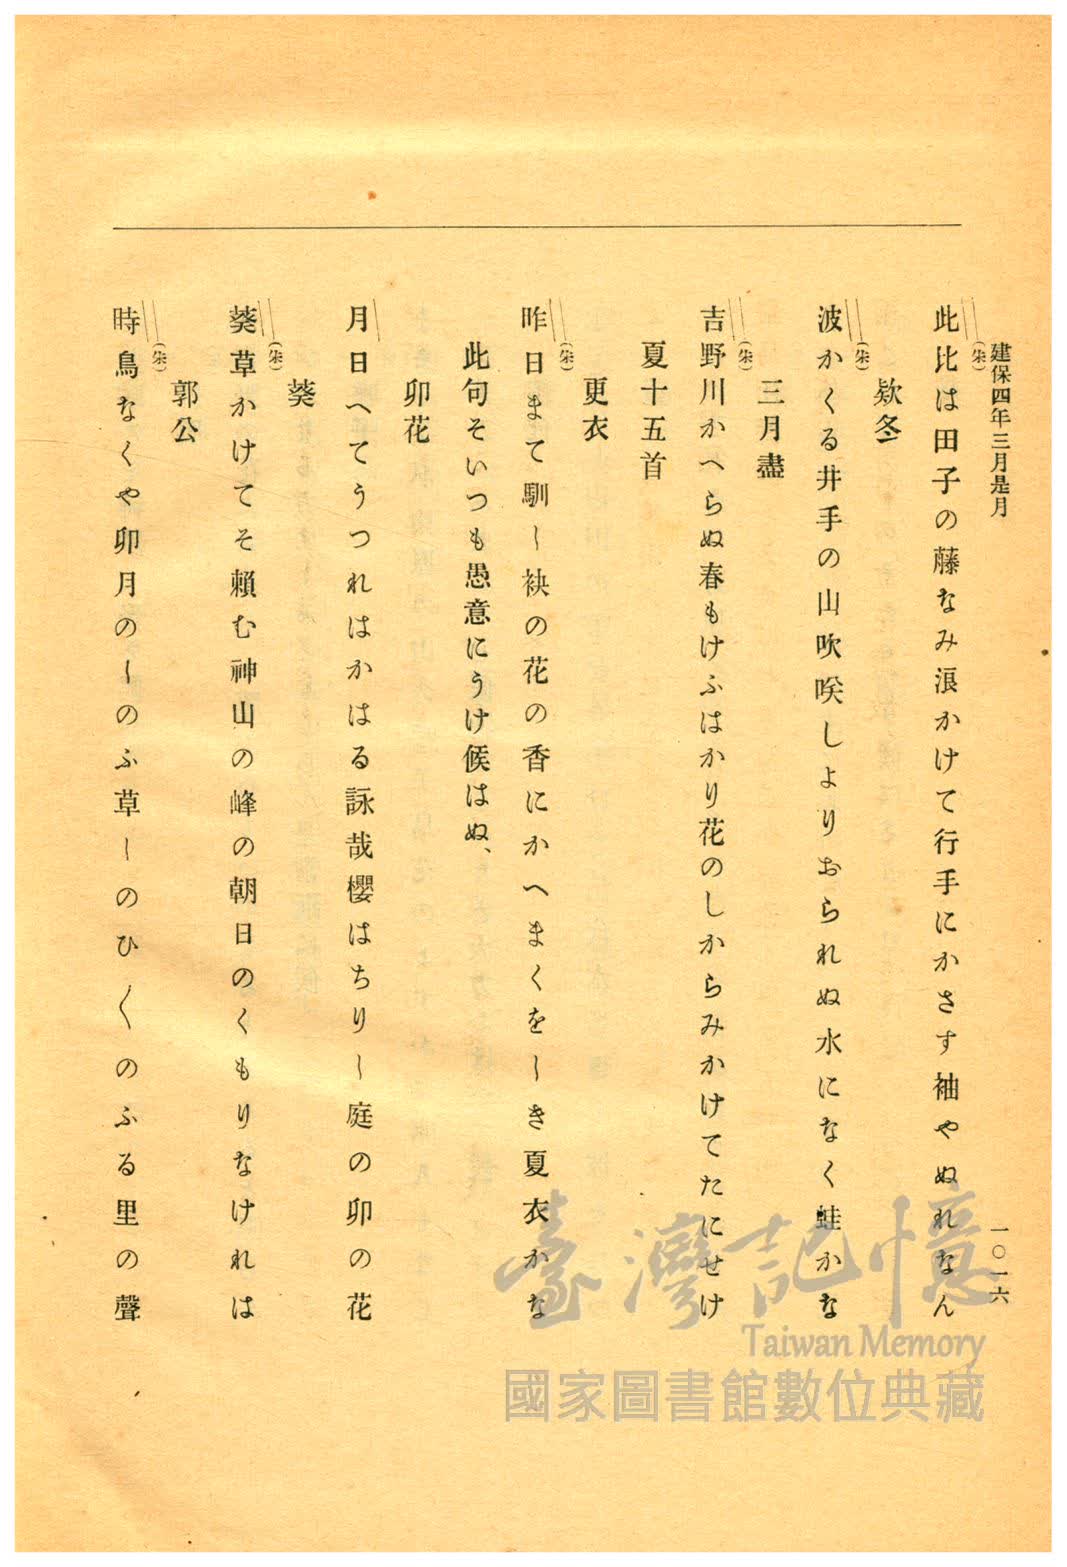 建保四年三月是月
一〇一六
(朱)
此比は田子の藤なみ浪かけて行手にかさす袖やぬれなん
欵冬
(朱)
波かくる井手の山吹咲しよりおられぬ水になく蛙かな
三月盡
(朱)
吉野川かへらぬ春もけふはかり花のしからみかけてたにせけ
夏十五首
更衣
(朱)
昨日まて馴し袂の花の香にかへまくをしき夏衣かな
此句そいつも愚意にうけ候はぬ、
卯花
月日へてうつれはかはる詠哉櫻はちりし庭の卯の花
葵
(朱)
葵草かけてそ賴む神山の峰の朝日のくもりなけれは
郭公
(朱)
時鳥なくや卯月のしのふ草しのひ〱のふる里の聲
臺灣記憶
Taiwan Memory
國家圖書館數位典藏